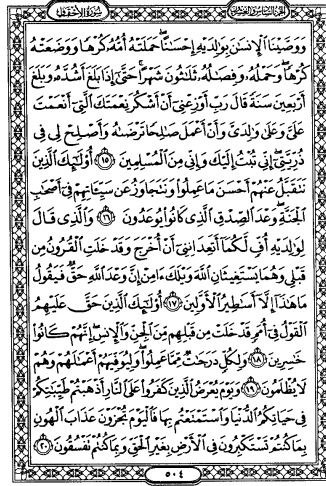 الجزء السادس والعشرون سورة الأحقاف
ووصينا الإنسن بولديه إحسنا حملته أمه كرها ووضعته
كرها وحمله وفصله ثلثون شهرا حتى إذا بلغ أشده وبلغ
أربعين سنة قال رب أوزعنى أن أشكر نعمتك التى أنعمت
على وعلى ولدى وأن أعمل صلحا ترضىه وأصلح لى فى
ذريتى إنى تبت إليك وإنى من المسلمين ١٥ أولئك الذين
نتقبل عنهم أحسن ما عملوا ونتجاوز عن سيئاتهم فى أصحب
الجنة وعد الصدق الذى كانوا يوعدون ١٦ والذى قال
لولديه أف لكما أتعداننى أن أخرج وقد خلت القرون من
قبلى وهما يستغيثان الله ويلك ءامن إن وعد الله حق فيقول
ما هذا إلا أسطير الأولين ١٧ أولئك الذين حق عليهم
القول فى أمم قد خلت من قبلهم من الجن والإنس إنهم كانوا
خسرين ١٨ ولكل درجت مما عملوا وليوفيهم أعملهم وهم
لا يظلمون ١٩ ويوم يعرض الذين كفروا على النار أذهبتم طيبتكم
فى حياتكم الدنيا واستمتعتم بها فاليوم تجزون عذاب الهون
بما كنتم تستكبرون فى الأرض بغير الحق وبما كنتم تفسقون ٢٠
٥٠٤